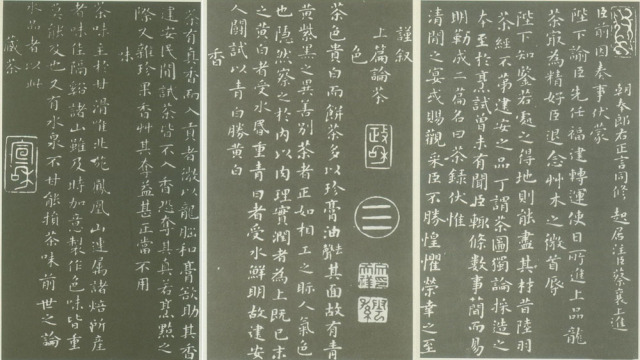 朝奉郎右正言同修 起居注臣蔡襄上進
臣前因奏事伏蒙
陛下諭臣先任福建轉運使日所進上品龍
茶最為精好臣退念艸木之微首辱
陛下知鑒若處之得地則能盡其材昔陸羽
茶經不第建安之品丁謂茶圖獨論採造之
本至於烹試曾未有聞臣輒條數事簡而易
明勒成二篇名曰茶錄伏惟
清閒之宴或賜觀采臣不勝惶懼榮幸之至
謹叙
上篇論茶
色
政和
茶色貴白而餅茶多以珍膏油其面故有青
黃紫黑之異善別茶者正如相工之眎人氣色
也隱然察之於內以肉理實潤者為上既已末
之黃白者受水昏重青白者受水鮮明故建安
人鬭試以青白勝黃白
香
茶有真香而入貢者微以龍腦和膏欲助其香
建安民間試茶皆不入香恐奪其真若烹點之
際又雜珍果香艸其奪益甚正當不用
味
茶味主於甘滑惟北苑鳳凰山連屬諸焙所產
者味佳隔谿諸山雖及時加意製作色味皆重
莫能及也又有水泉不甘能損茶味前世之論
水品者以此
藏茶
宣和